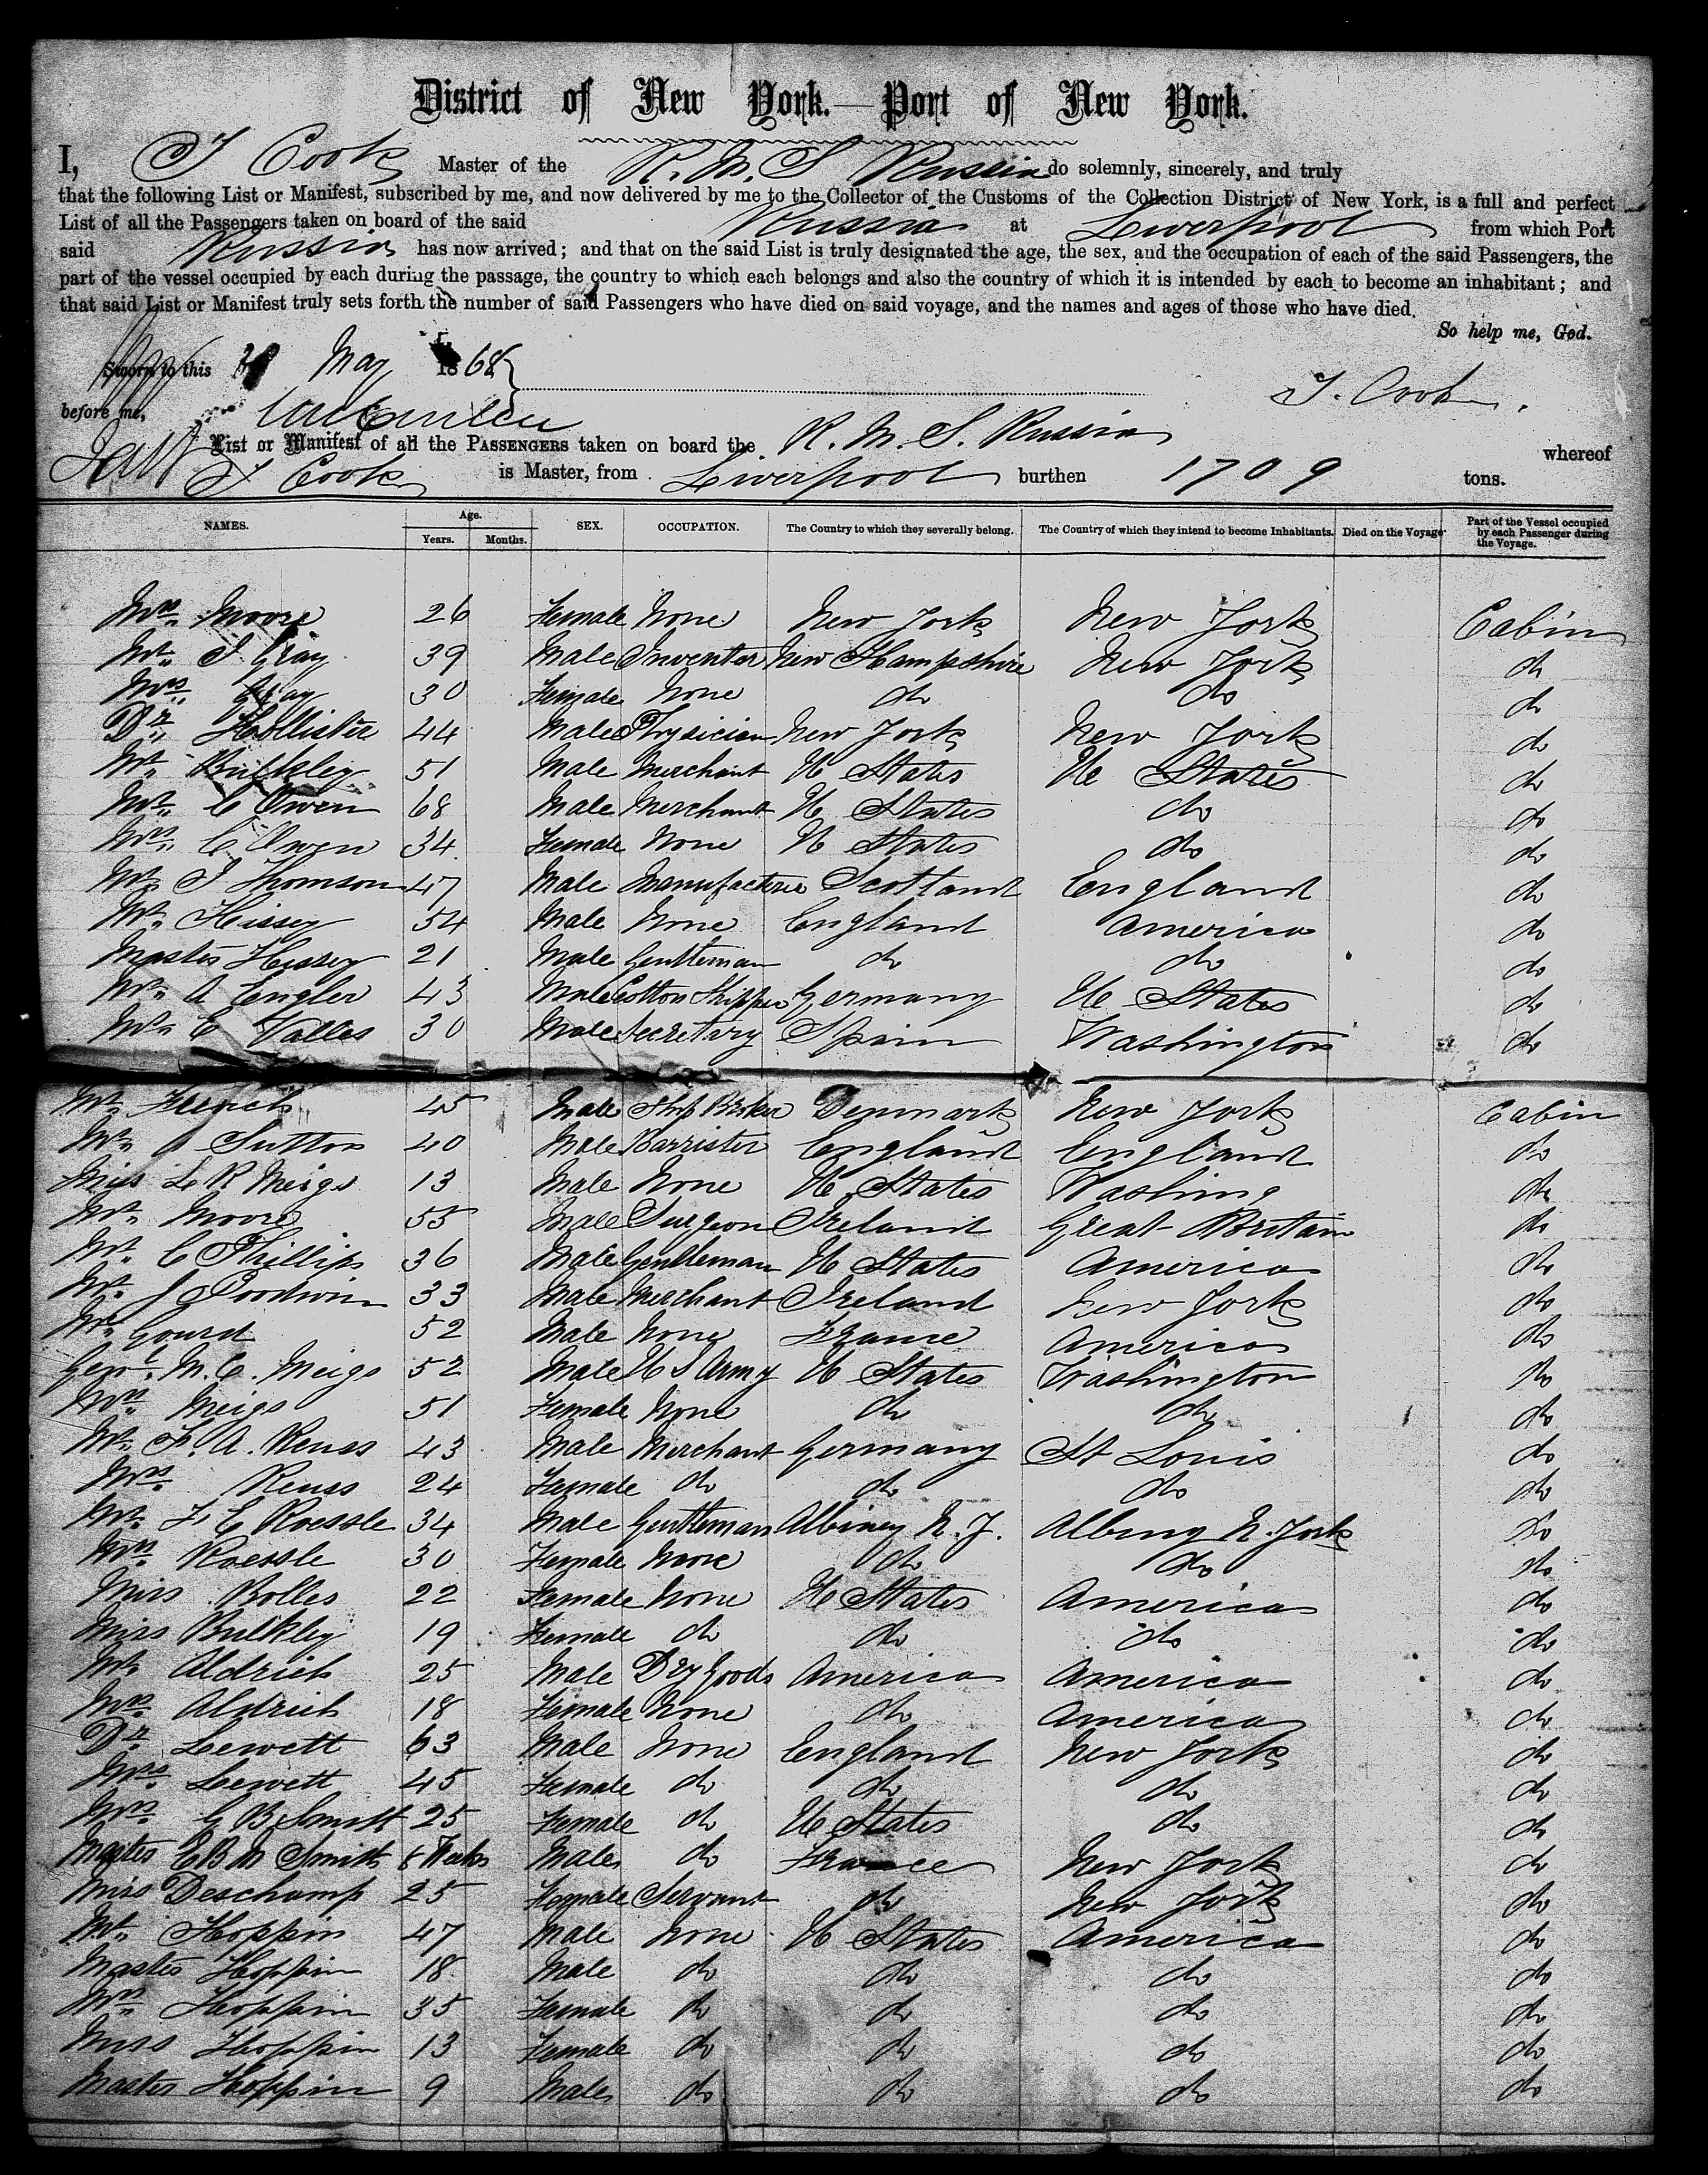 District of New York.—Port of New York.
I, T Cook Master of the R. M. S Russia do solemnly, sincerely, and truly
that the following List or Manifest, subscribed by me, and now delivered by me to the Collector of the Customs of the Collection District of New York, is a full and perfect
List of all the Passengers taken on board of the said Russia at Liverpool from which Port
said Russia has now arrived; and that on the said List is truly designated the age, the sex, and the occupation of each of the said Passengers, the
part of the vessel occupied by each during the passage, the country to which each belongs and also the country of which it is intended by each to become an inhabitant; and
that said List or Manifest truly sets forth the number of said Passengers who have died on said voyage, and the names and ages of those who have died.
So help me, God.
Sworn to this May 1868
before me, T. Cook.
List or Manifest of all the PASSENGERS taken on board the R. M. S. Russia whereof
T Cook is Master, from Liverpool burthen 1709 tons.
NAMES. Age. Years. Months. SEX. OCCUPATION. The Country to which they severally belong. The Country of which they intend to become Inhabitants. Died on the Voyage Part of the Vessel occupied by each Passenger during the Voyage.
Mrs. Moore 26 Female None New York New York Cabin
Mr. J Gray 39 Male Inventer New Hampshire New York do
Mrs. Gray 30 Female None do do do
Dr. Hollister 44 Male Physician New York New York do
Mr. Bulkley 51 Male Merchant U States U States do
Mr. C Owen 68 Male Merchant U States do do
Mrs. C Owen 34 Female None U States do do
Mr. J Thomson 47 Male Manufacturer Scotland England do
Mr. Hissey 54 Male None England America do
Master Hissey 21 Male Gentleman do do do
Mr. A Engler 43 Male Cotton Shipper Germany U States do
Mr. E Valles 30 Male Secretary Spain Washington do
Mr. French 45 Male Ship Broker Denmark New York Cabin
Mr. A Sutton 40 Male Barrister England England do
Miss L R Meigs 13 Male None U States Washing do
Mr. Moore 55 Male Surgeon Ireland Great Britain do
Mr. C Phillips 36 Male Gentleman U States America do
Mr. J Goodwin 33 Male Merchant Ireland New York do
Mr Gourd 52 Male None France America do
Genl. M. C. Meigs 52 Male U S Army U States Washington do
Mrs. Meigs 51 Female None do do do
Mr. F. A. Reuss 43 Male Merchant Germany St Louis do
Mrs. Reuss 24 Female do do do do
Mr. T E Roessle 34 Male Gentleman Albiney N. Y. Albiny N. York do
Mrs. Roessle 30 Female None do do do
Miss Bolles 22 Female None U States America do
Miss Bulkley 19 Female do do do do
Mr. Aldrich 25 Male Dry Goods America America do
Mrs. Aldrich 18 Female None do America do
Dr. Lewett 63 Male None England New York do
Mrs. Lewett 45 Female do do do do
Mrs. G B Smith 25 Female do U States do do
Master E B M Smith 6 Weeks Male do France New York do
Miss Deschamp 25 Female Servant do New York do
Mr. Hoppin 47 Male None U States America do
Master Hoppin 18 Male do do do do
Mrs. Hoppin 35 Female do do do do
Miss Hoppin 13 Female do do do do
Master Hoppin 9 Male do do do do